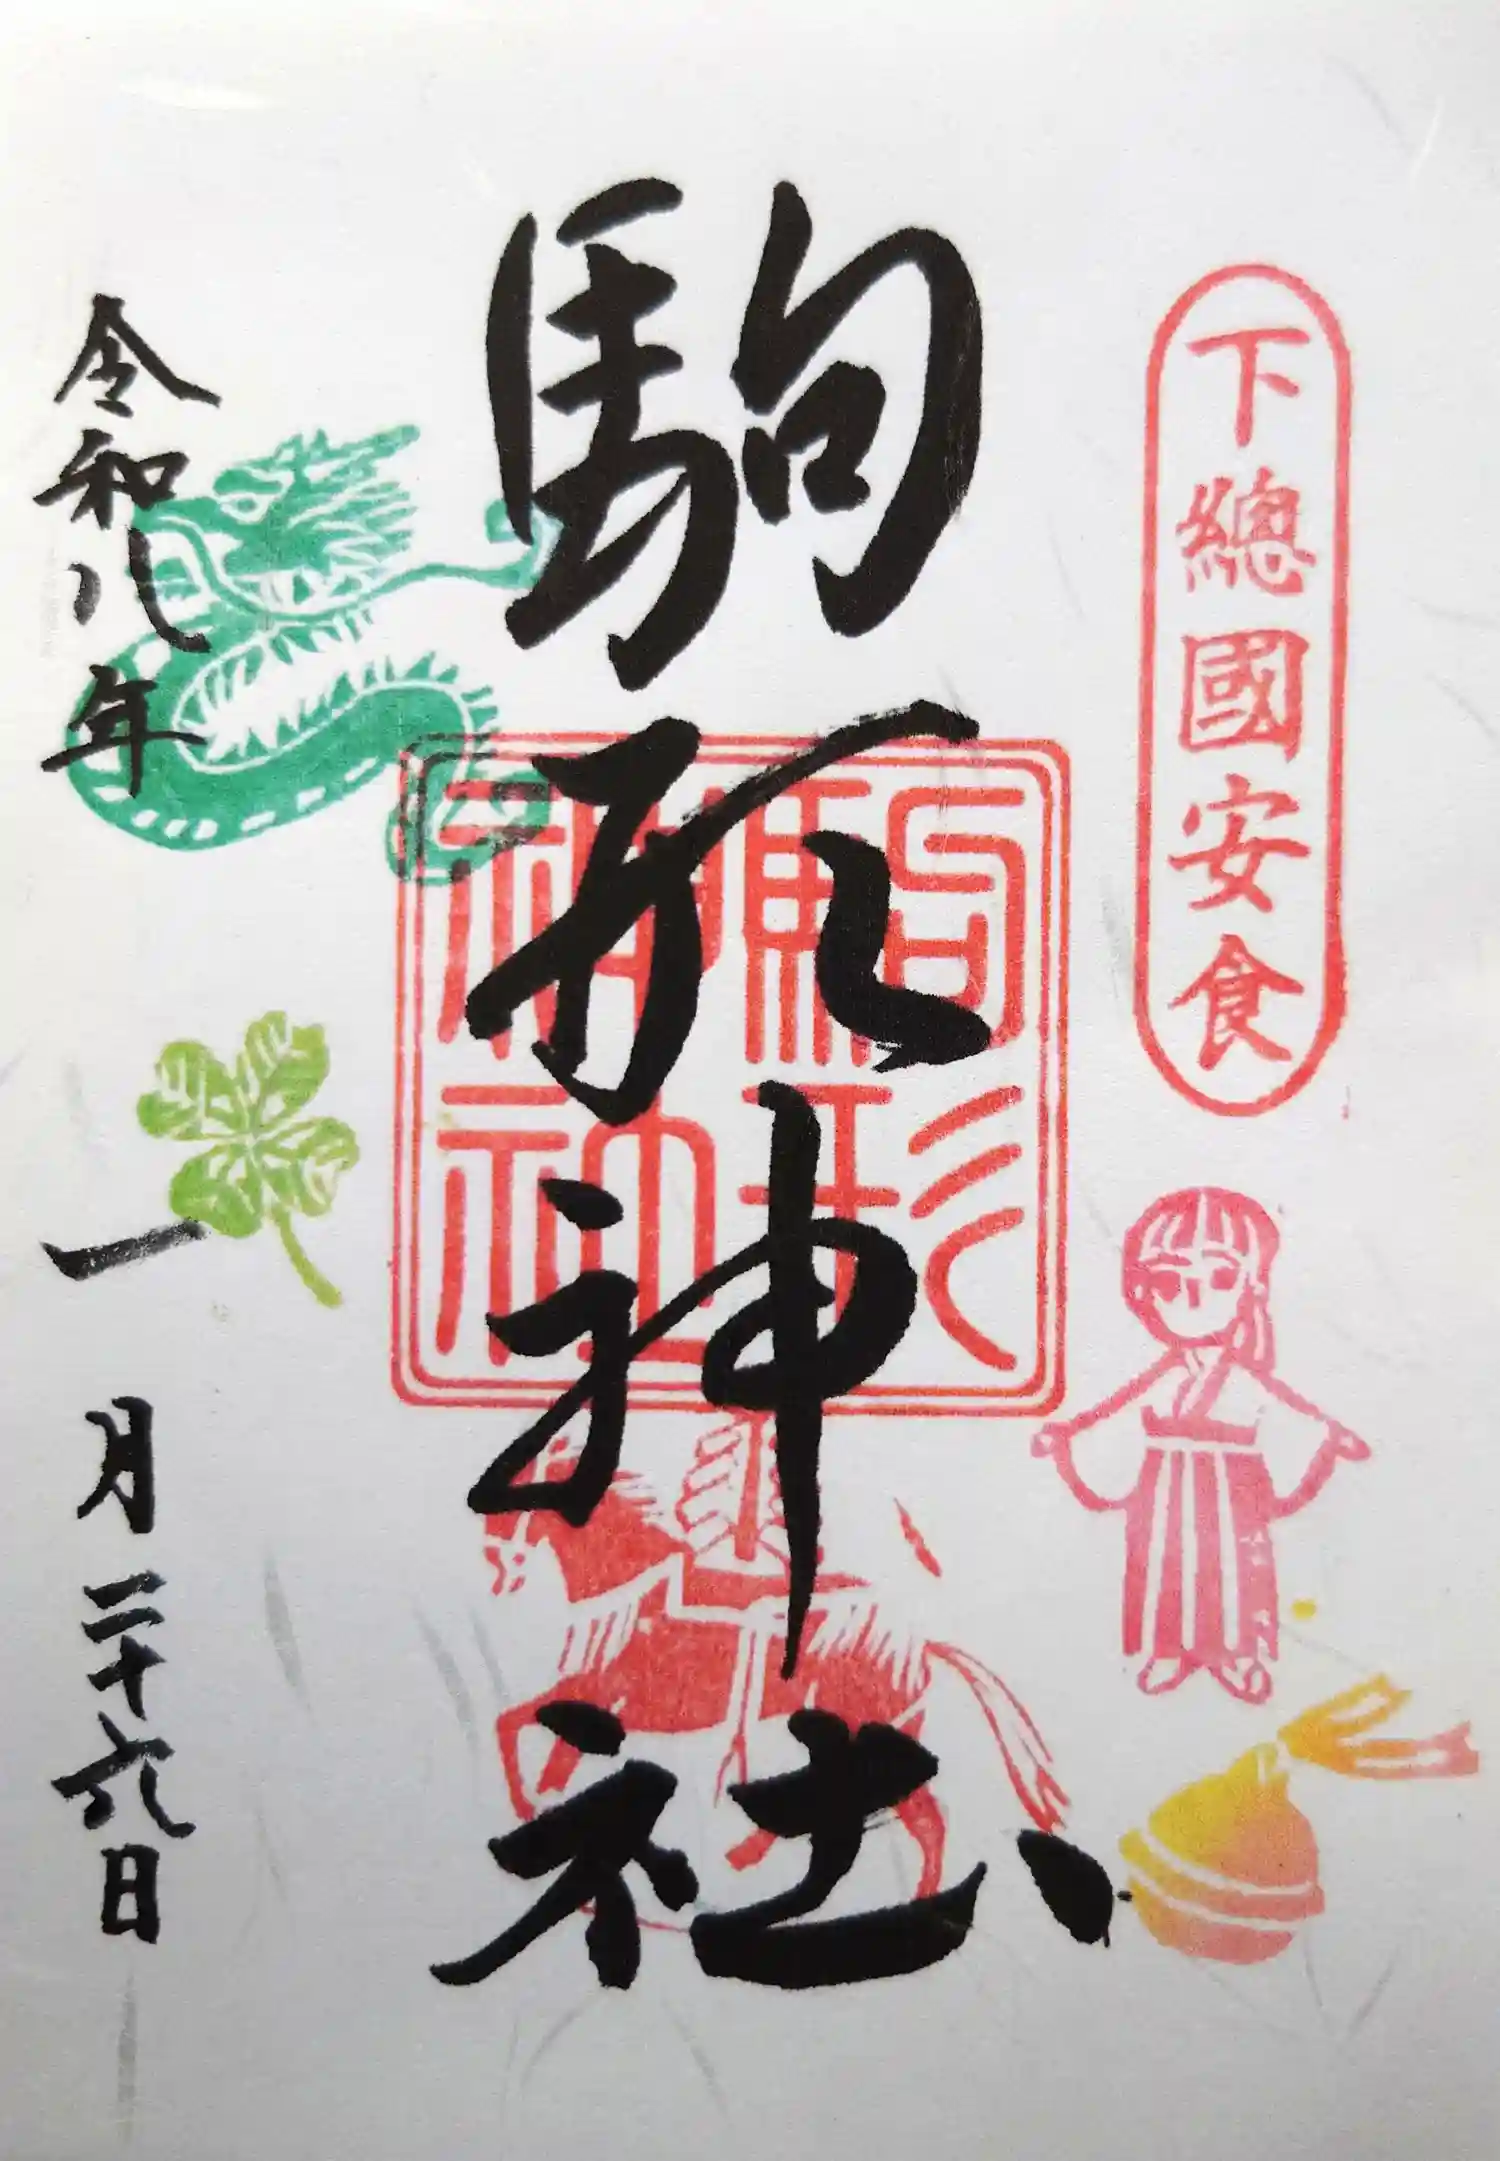 下總國安食
駒形神社
駒形神社
令和八年
一月二十六日